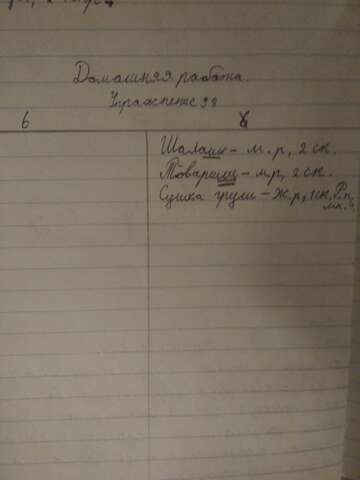 Домашняя работа.
Упражнение 98
б
Шалаш - м.р, 2 ск.
Товарищ - м.р, 2 ск.
Сушка груш - ж.р, 1 ск, Р.п,
мн.ч